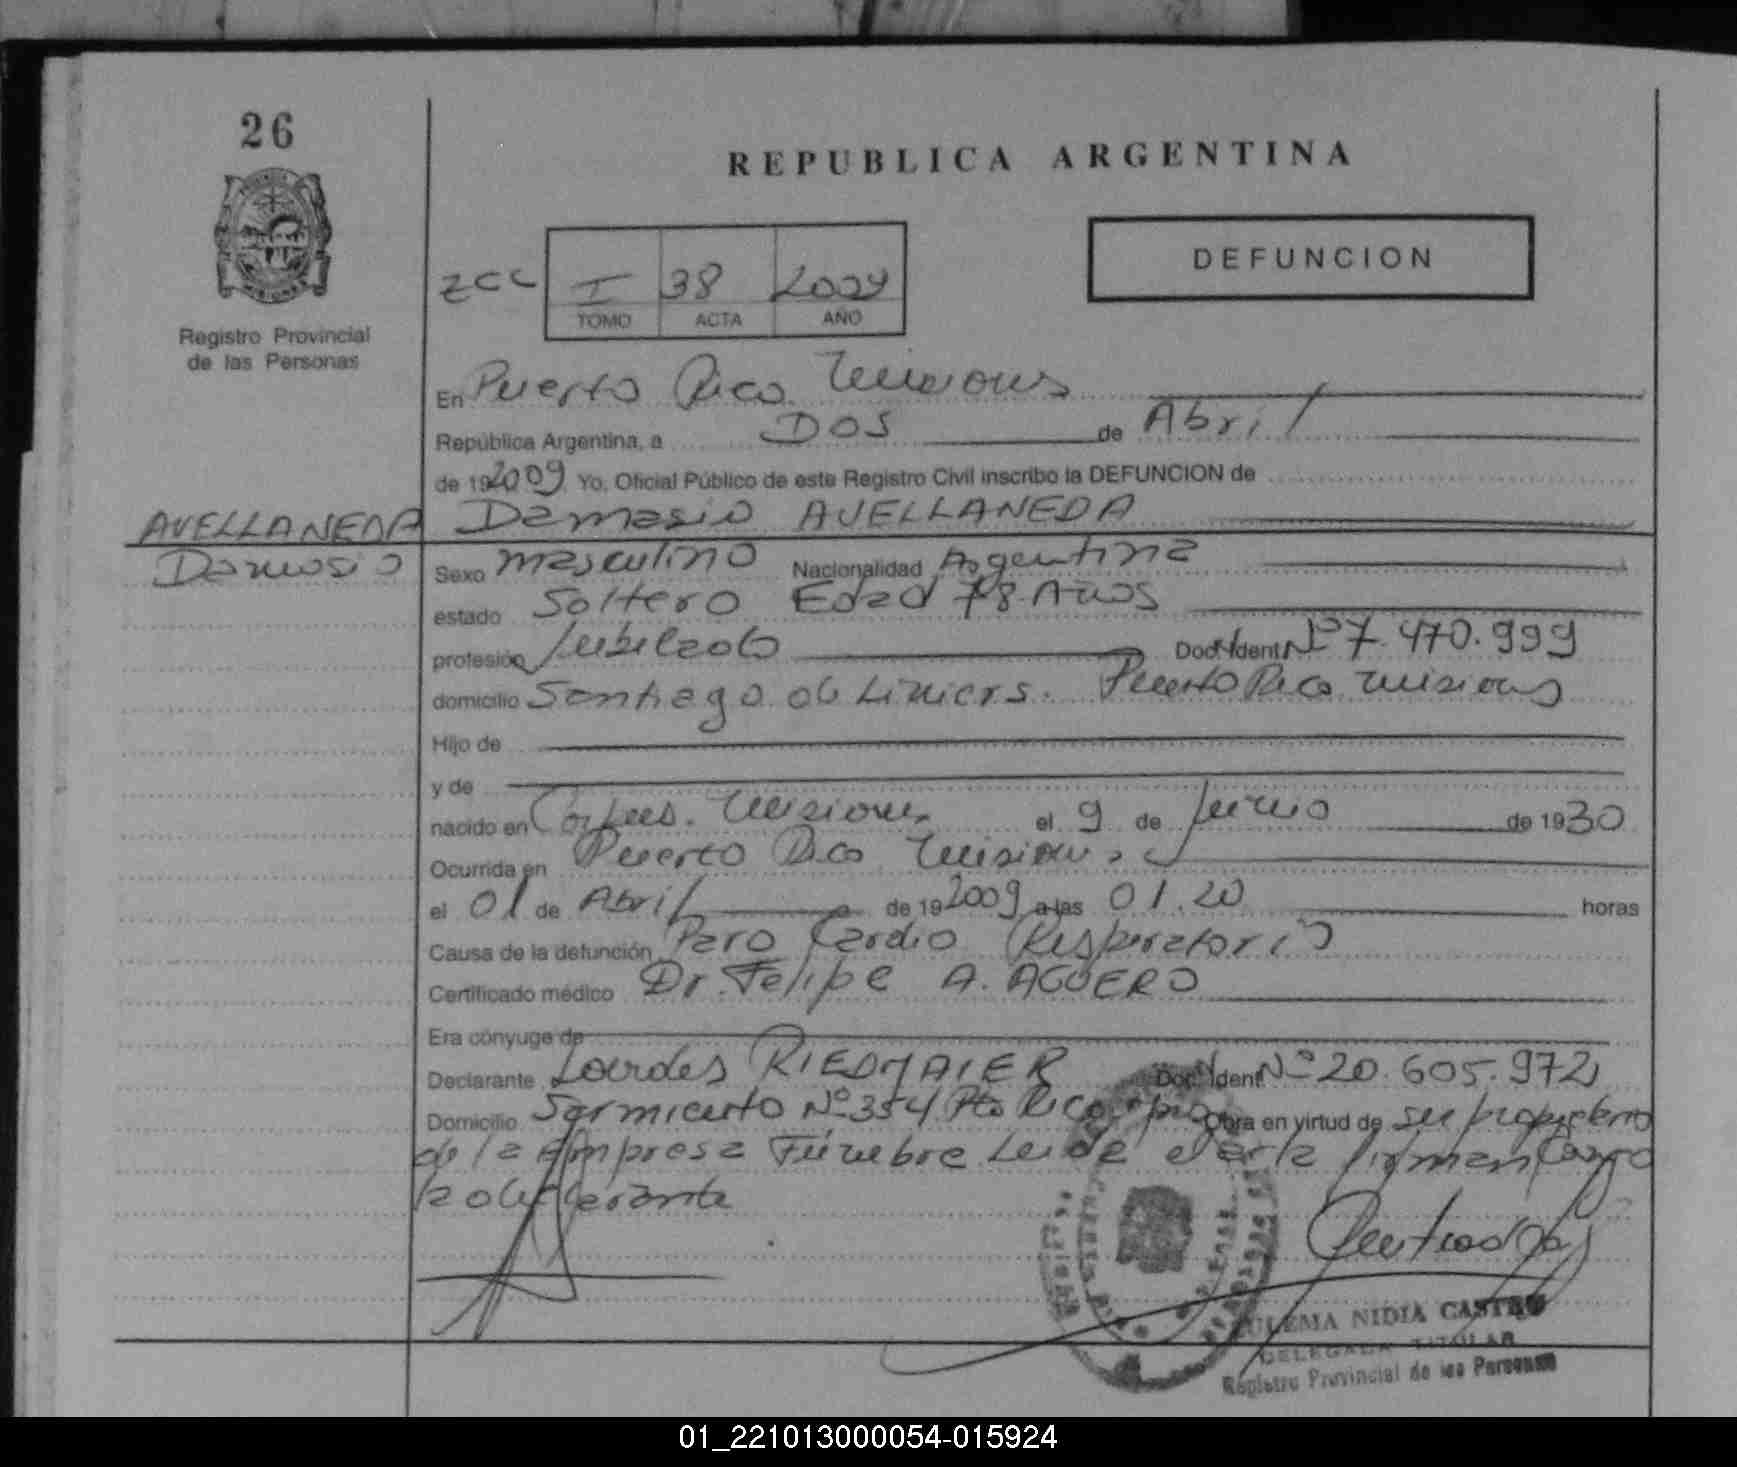 26
REPUBLICA ARGENTINA
DEFUNCION
Registro Provincial
de las Personas
I 38 2009
TOMO ACTA AÑO
En Puerto Rico Misiones
República Argentina, a DOS de Abril
de 19 2009 Yo, Oficial Público de este Registro Civil inscribo la DEFUNCION de
AVELLANEDA Damasio AVELLANEDA
Damasio
Sexo masculino Nacionalidad Argentina
estado Soltero Edad 78 Años
profesión Jubilado Doc. Ident Nº 7.470.999
domicilio Santiago de Liniers. Puerto Rico Misiones
Hijo de
y de
nacido en Corpus. Misiones el 9 de Junio de 1930
Ocurrida en Puerto Rico Misiones
el 01 de Abril de 19 2009 a las 01.20 horas
Causa de la defunción Paro Cardio Respiratorio
Certificado médico Dr. Felipe A. AGÜERO
Era cónyuge de
Declarante Lourdes RIEDMAIER Doc. Ident Nº 20.605.972
Domicilio Sarmiento Nº 354 Pto Rico Obra en virtud de ser propietario
de la Empresa Fúnebre Leida el acta firman
la declarante
ZULEMA NIDIA CASTRO
DELEGADA TITULAR
Registro Provincial de las Personas
01_221013000054-015924